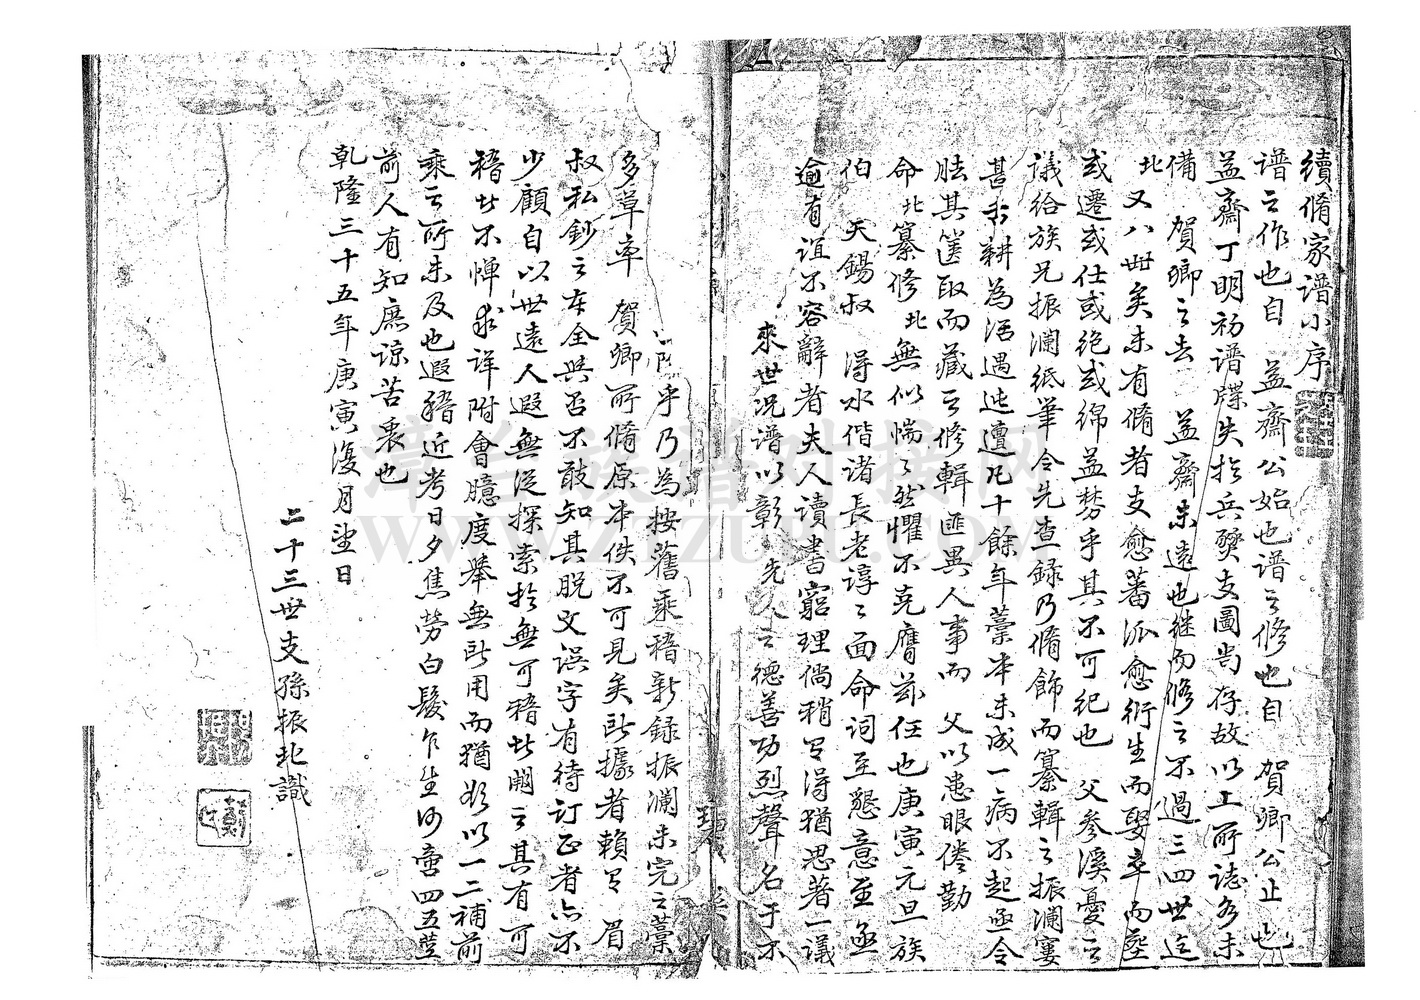 續脩家譜小序
譜之作也自 益齋公始也譜之修也自 賀卿公止也
益齋丁明初譜牒失於兵燹支圖尚存故以上所誌多未
備 賀卿之去 益齋未遠也継而修之不過三四世迄
北又八世矣未有脩者支愈蕃派愈衍生而娶卒而塟
或遷或仕或絶或綿益棼乎其不可紀也 父参溪憂之
議給族兄振瀾紙筆令先查録乃脩飾而纂輯之振瀾窶
甚舌耕為活遇迍邅凡十餘年藁本未成一病不起亟令
胠其篋取而藏之修輯匪異人事而 父以患眼倦勤
命北纂修北無似惴々然懼不克膺茲任也庚寅元旦族
伯 天錫叔 得水偕諸長老諄々面命詞至懇意至亟
逾有誼不容辭者夫人讀書窮理倘稍有得猶思著一議
來世况譜以彰先人之德善功烈聲名于不
乎乃為按舊乘稽新録振瀾未完之藁
多草率 賀卿所脩原本佚不可見矣所據者賴有 眉
叔私鈔之本全與否不敢知其脱文誤字有待訂正者亦不
少顧自以世遠人遐無從探索於無可稽者闕之其有可
稽者不憚求詳附會臆度舉無所用而猶欲以一二補前
乘之所未及也遐稽近考日夕焦勞白髮乍生何啻四五莖
前人有知庶諒苦衷也
乾隆三十五年庚寅復月望日
二十三世支孫振北識
漳台族譜對接网
WWW.ZTZUPU.COM